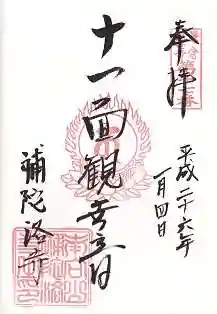 奉拝
平成二十六年
一月四日
十一面観世音
補陀洛寺